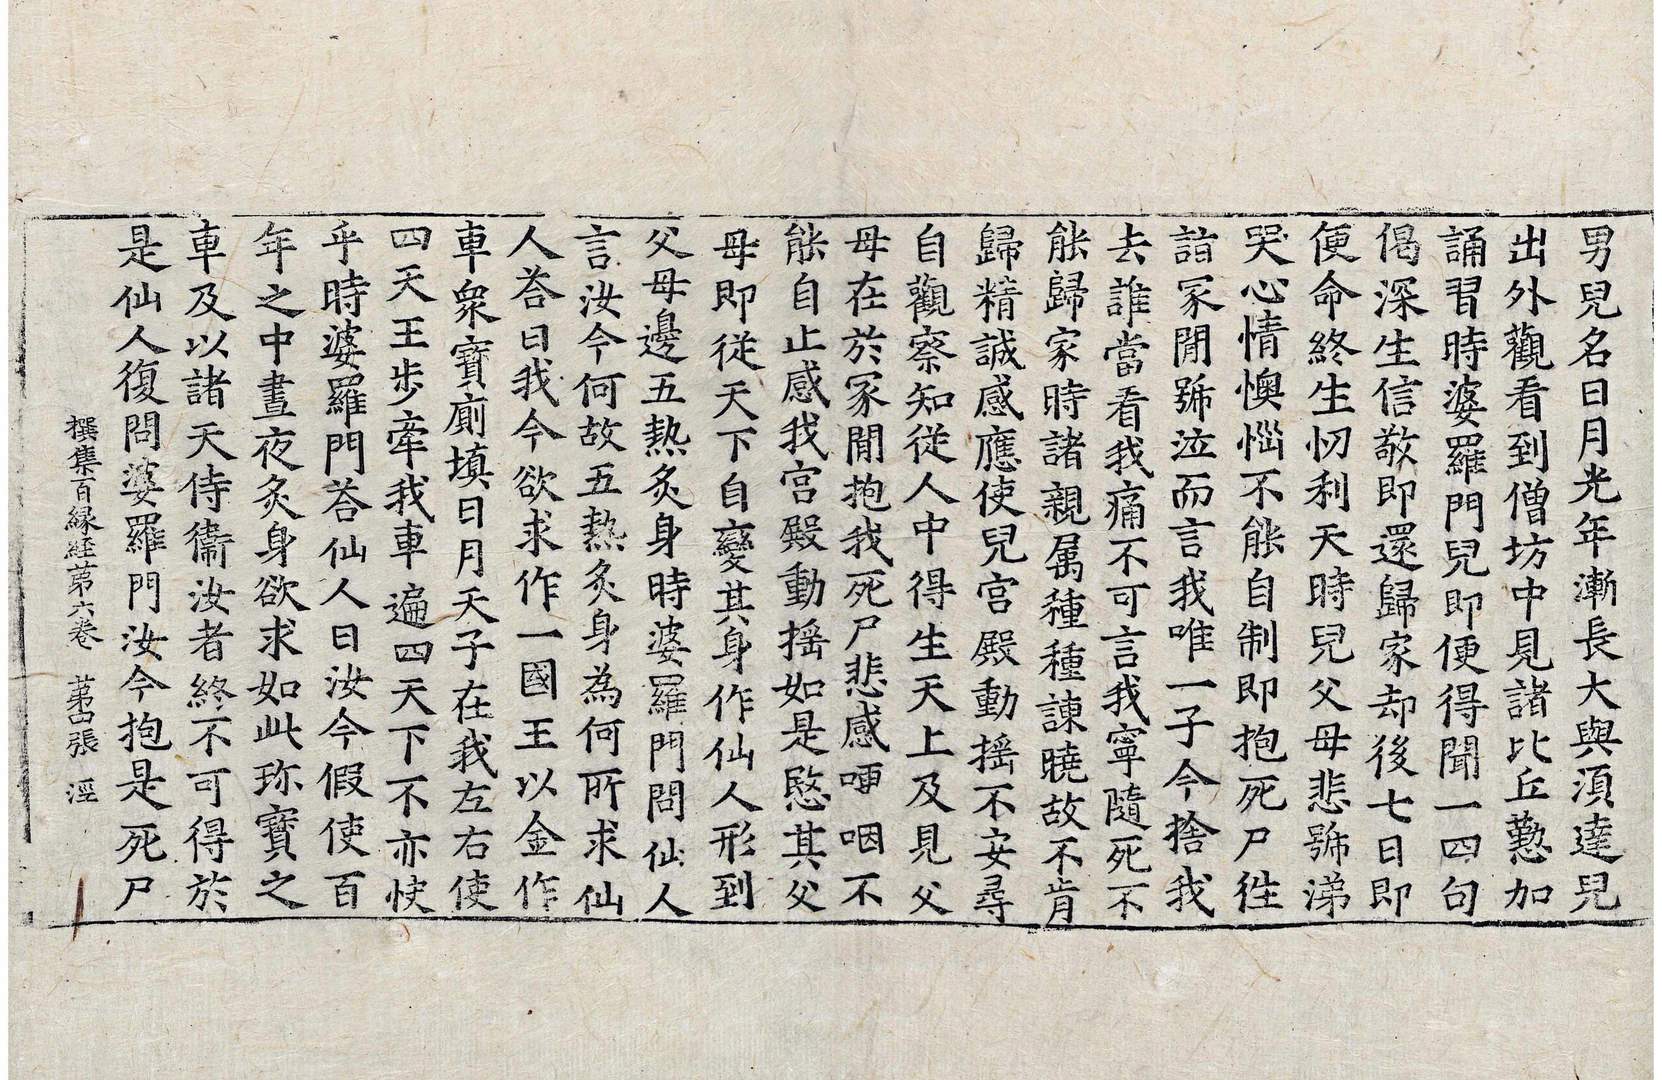 男兒名曰月光年漸長大與湏達兒
出外觀看到僧坊中見諸比丘懃加
誦習時婆羅門兒即便得聞一四句
偈深生信敬即還歸家却後七日即
便命終生忉利天時兒父母悲號涕
哭心情懊惱不能自制即抱死尸徃
詣冢閒號泣而言我唯一子今捨我
去誰當看我痛不可言我寧隨死不
能歸家時諸親属種種諫曉故不肯
歸精誠感應使兒宮殿動揺不安尋
自觀察知從人中得生天上及見父
母在於冢閒抱我死尸悲感哽咽不
能自止感我宮殿動揺如是愍其父
母即從天下自變其身作仙人形到
父母邊五熱炙身時婆羅門問仙人
言汝今何故五熱炙身為何所求仙
人荅曰我今欲求作一國王以金作
車衆寶廁填日月天子在我左右使
四天王步牽我車遍四天下不亦快
乎時婆羅門荅仙人曰汝今假使百
年之中晝夜炙身欲求如此珎寶之
車及以諸天侍衛汝者終不可得於
是仙人復問婆羅門汝今抱是死尸
撰集百縁経苐六卷　苐四張　涇